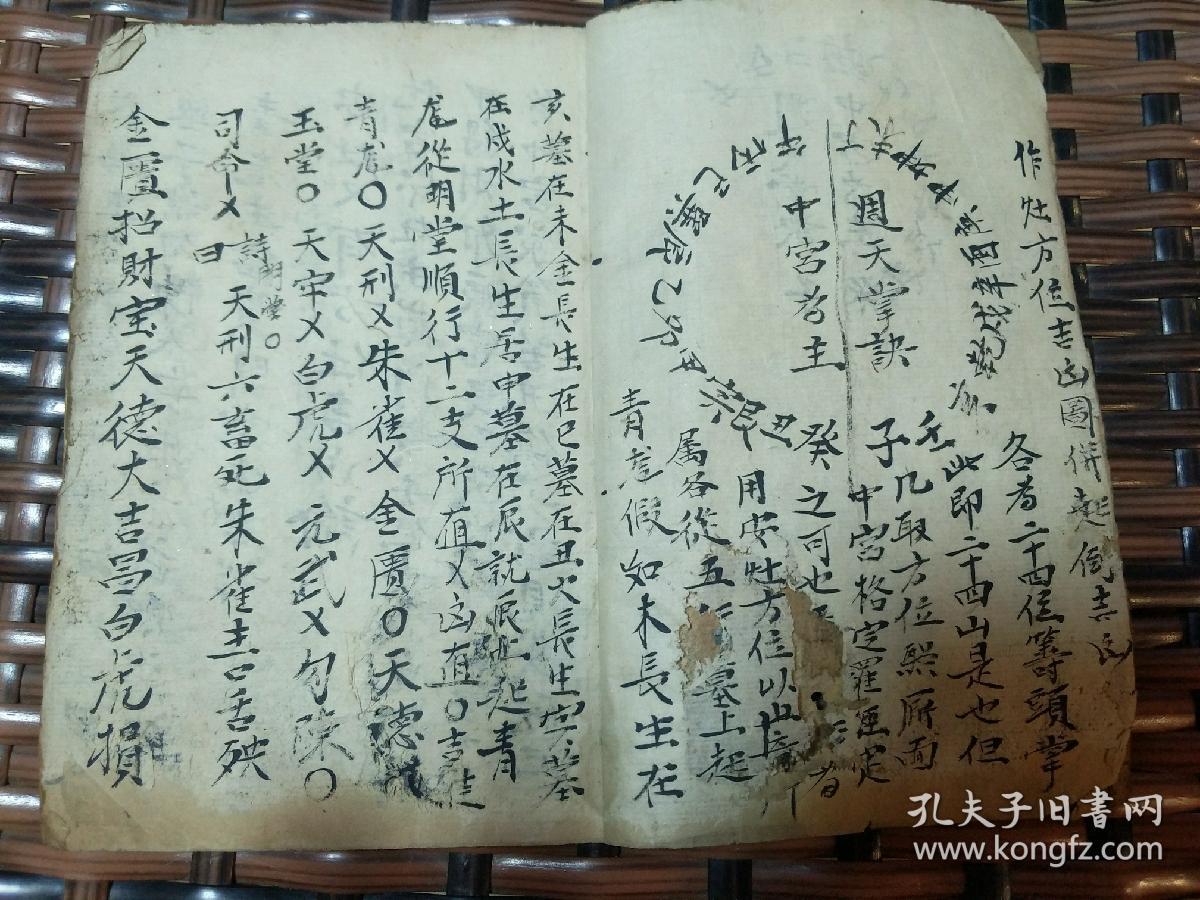 作灶方位吉凶圖併起例吉凶
週天掌訣
中宮為主
各為二十四位等頭掌
壬此即二十四山是也但
子凡取方位照厨面
中宮格定羅經定
癸之可也
用安灶方位以山音所
属各從五行墓上起
青龙假如木長生在
亥墓在未金長生在巳墓在丑火長生寅墓
在戌水土長生居申墓在辰就辰上起青
龙從明堂順行十二支所值乂凶值〇吉
青龙〇天刑乂朱雀乂金匱〇天德
玉堂〇天牢乂白虎乂元武乂勾陳〇
司命乂
明堂〇
詩曰
天刑六畜死朱雀主口舌殃
金匱招財宝天德大吉昌白虎損
孔夫子旧书网
www.kongfz.com